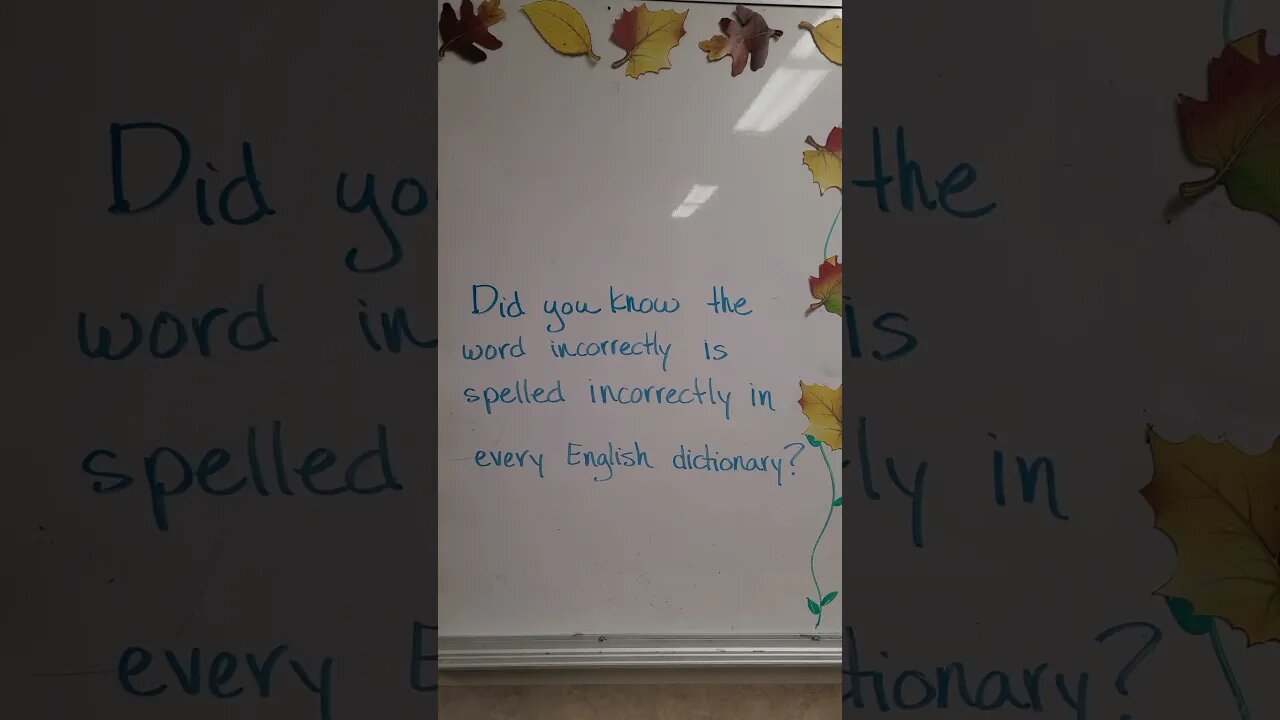 Did you know the
word incorrectly is
spelled incorrectly in
every English dictionary?